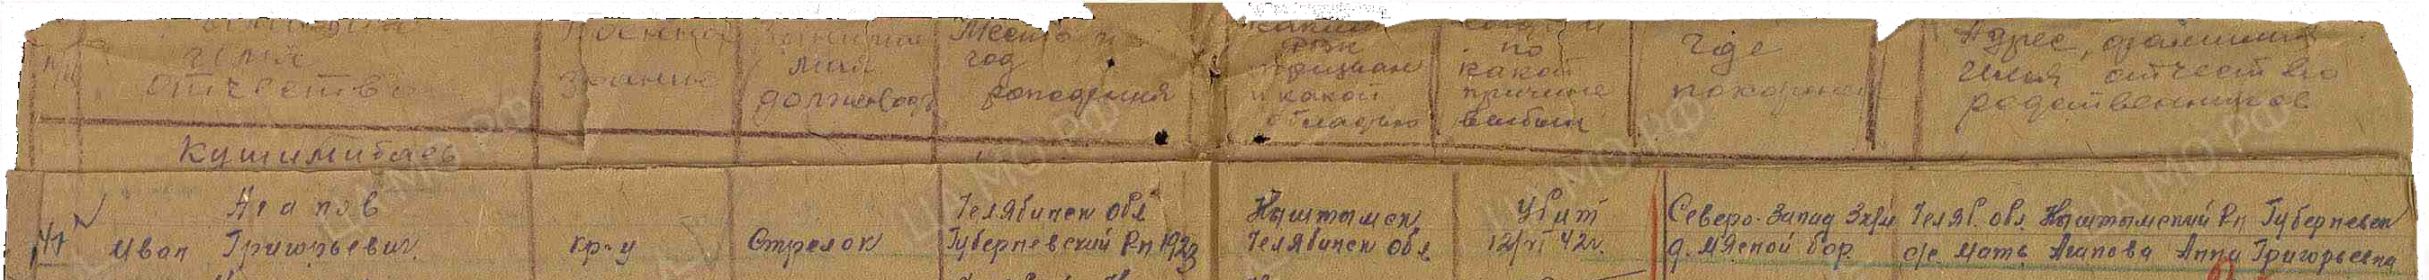 имя
отчество
Военное
звание
должность
Место и
год
рождения
Каким
РВК
призван
и какой
области
по
какой
причине
выбыл
Где
похоронен
Адрес, фамилия
имя отчество
родственников
Кушимибаев
47
Агапов
Иван Григорьевич
кр-ц
Стрелок
Челябинск обл
Губерневский Р-н 1923
Кыштымск
Челябинск обл
Убит
12/VI 42 г.
Северо-Запад 3 км
д. Мясной бор.
Челяб. обл Кыштымский Р-н Губерневск
с/с Мать Агапова Анна Григорьевна
ЦАМО РФ